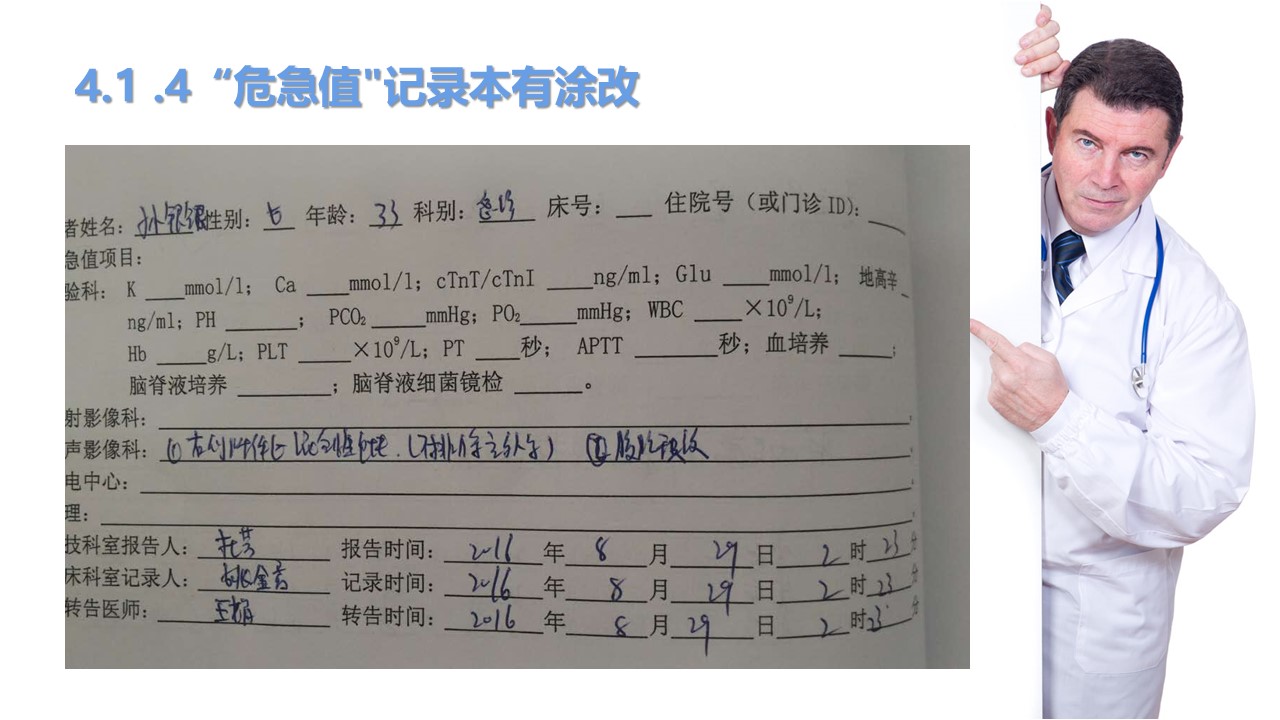 4.1 .4 “危急值"记录本有涂改
者姓名: 孙银银 性别: 女 年龄: 33 科别: 急诊 床号: 住院号 (或门诊 ID):
急值项目:
验科: K ____mmol/l; Ca ____mmol/l; cTnT/cTnI ____ng/ml; Glu ____mmol/l; 地高辛
ng/ml; PH ____; PCO₂ ____mmHg; PO₂ ____mmHg; WBC ____×10⁹/L;
Hb ____g/L; PLT ____×10⁹/L; PT ____秒; APTT ____秒; 血培养 ____;
脑脊液培养 ____; 脑脊液细菌镜检 ____。
射影像科:
声影像科: ① 右侧附件区 ②腹腔积液
电中心:
理:
技科室报告人: 杜芳 报告时间: 2016 年 8 月 29 日 2 时 23 分
床科室记录人: 记录时间: 2016 年 8 月 29 日 2 时 23 分
转告医师: 王娟 转告时间: 2016 年 8 月 29 日 2 时 23 分